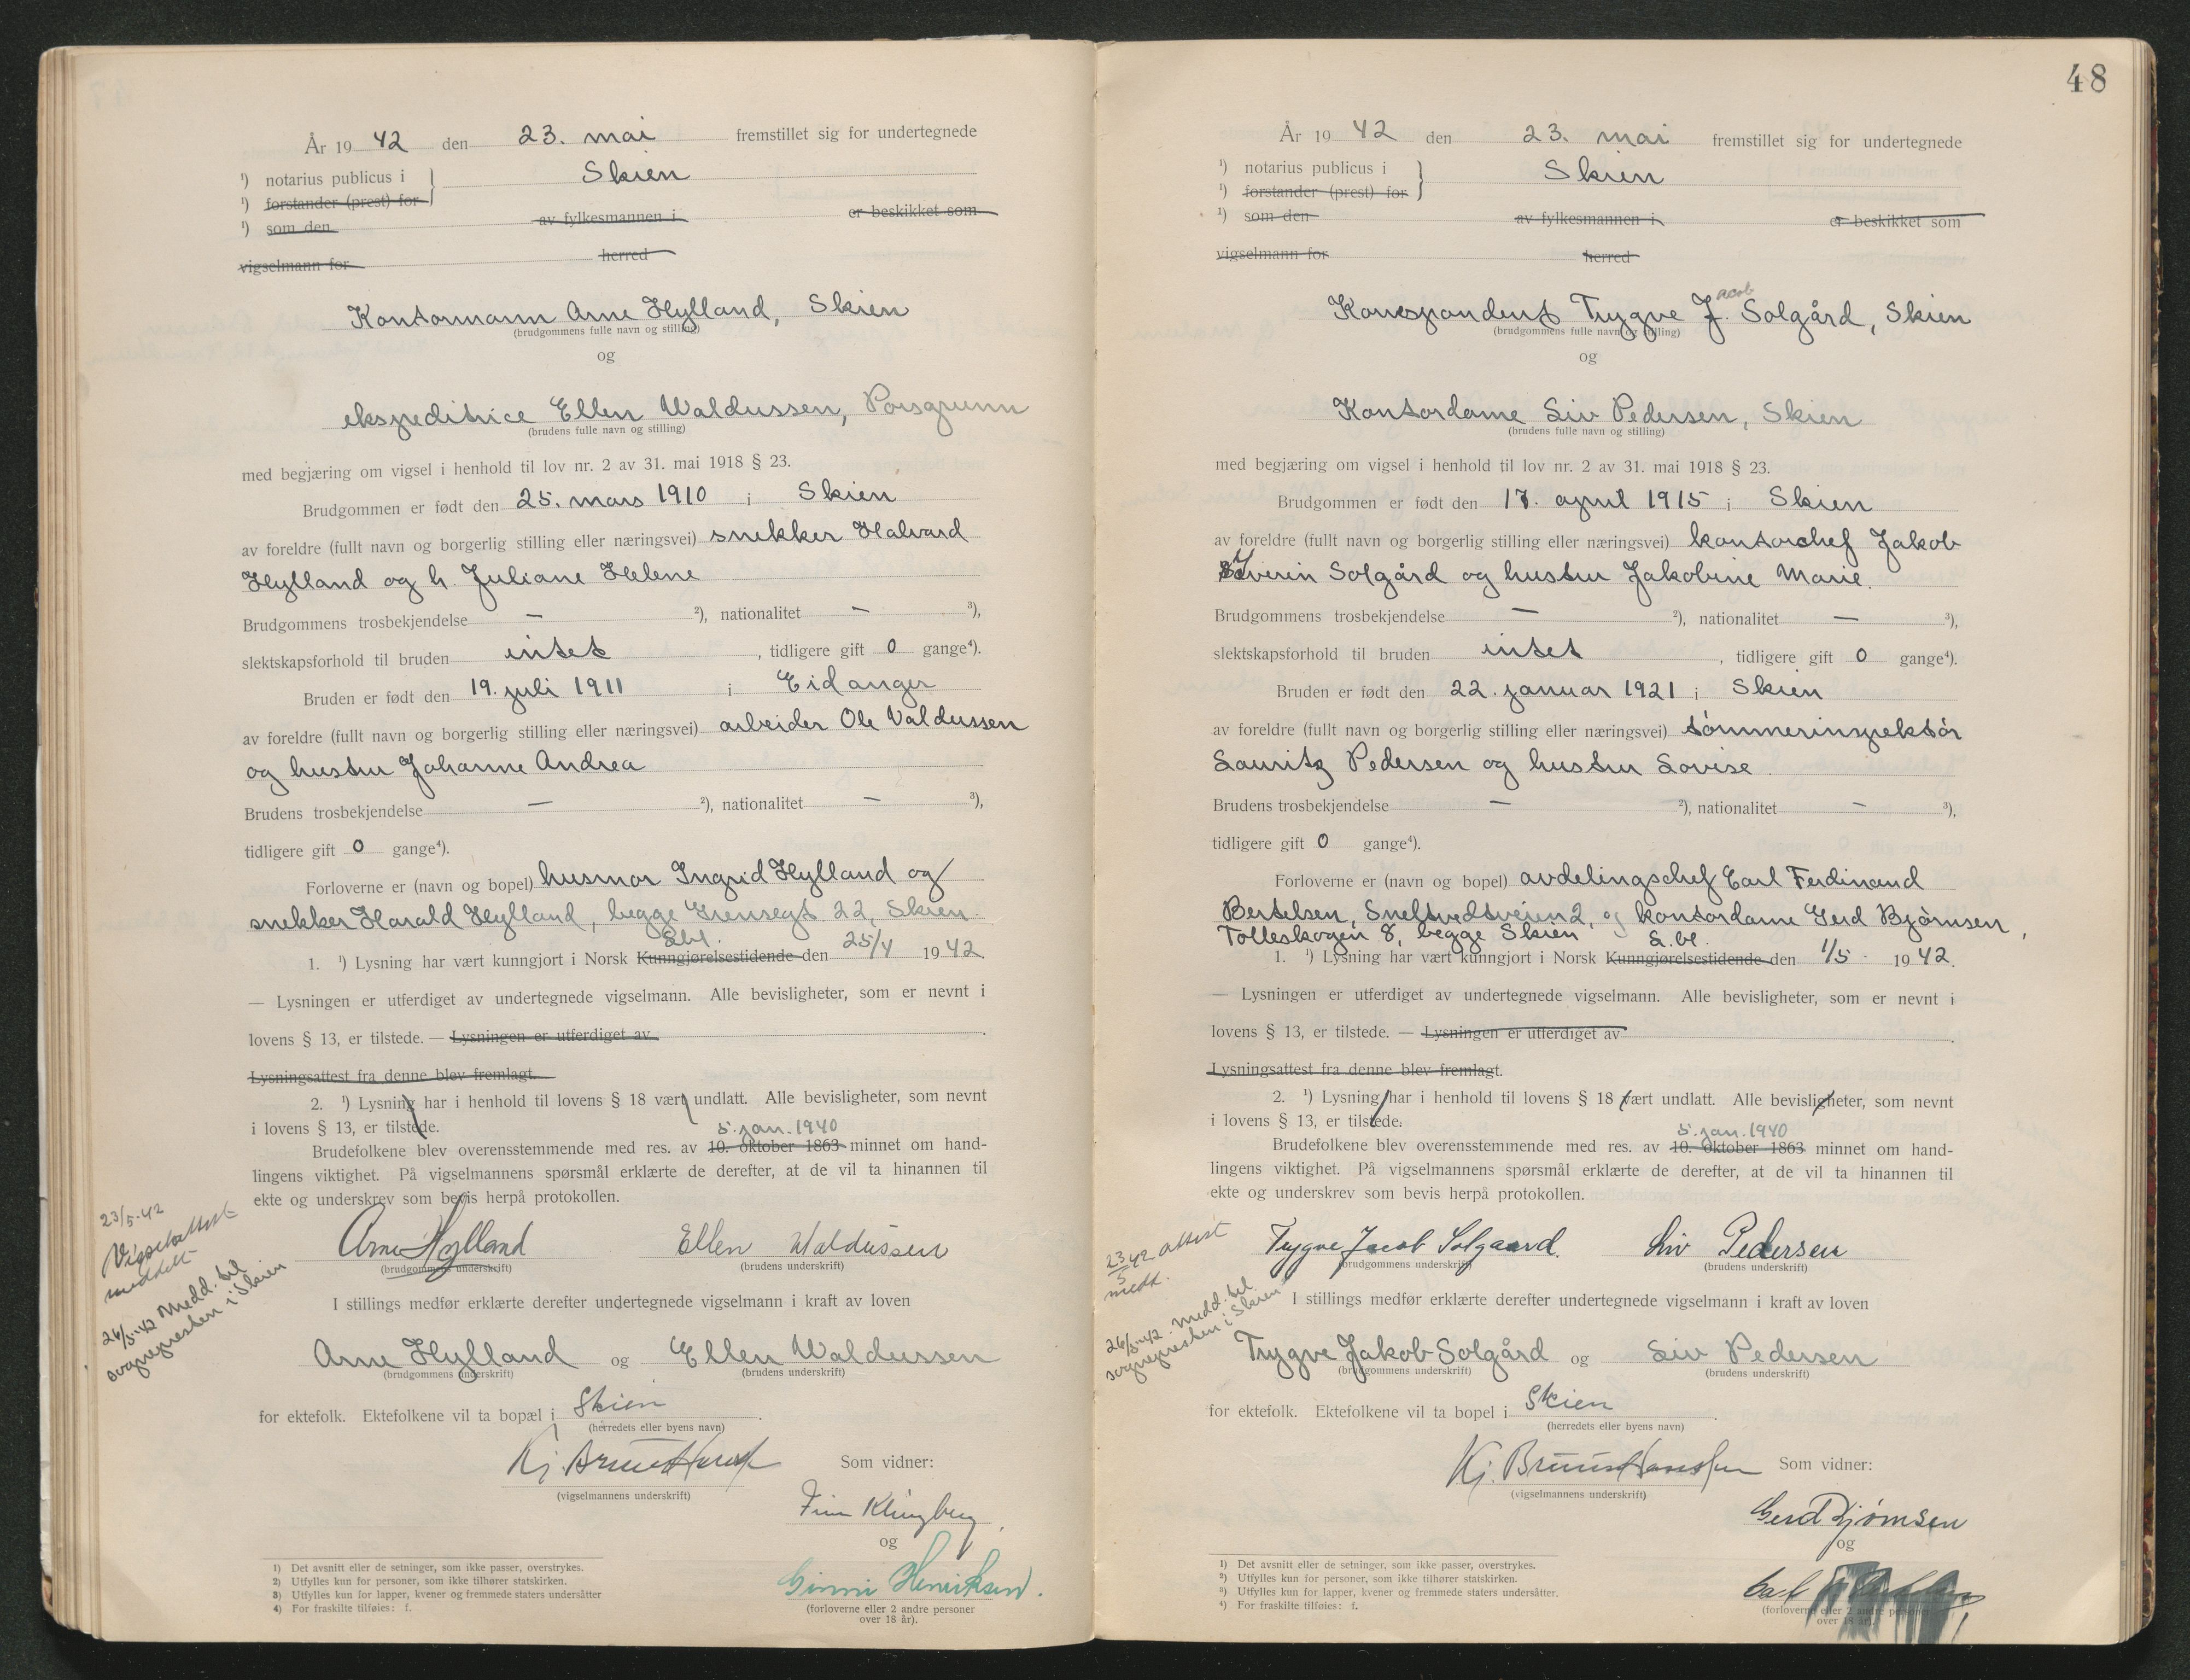 År 1942 den 23. mai fremstillet sig for undertegnede
¹) notarius publicus i } Skien
¹) forstander (prest) for
¹) som den av fylkesmannen i er beskikket som
vigselmann for herred
Kontormann Arne Hylland, Skien
(brudgommens fulle navn og stilling)
og
ekspeditrice Ellen Waldussen, Porsgrunn
(brudens fulle navn og stilling)
med begjæring om vigsel i henhold til lov nr. 2 av 31. mai 1918 § 23.
Brudgommen er født den 25. mars 1910 i Skien
av foreldre (fullt navn og borgerlig stilling eller næringsvei) snekker Halvard
Hylland og h. Juliane Helene
Brudgommens trosbekjendelse — ²), nationalitet — ³),
slektskapsforhold til bruden intet, tidligere gift 0 gange⁴).
Bruden er født den 19. juli 1911 i Eidanger
av foreldre (fullt navn og borgerlig stilling eller næringsvei) arbeider Ole Valdussen
og hustru Johanne Andrea
Brudens trosbekjendelse — ²), nationalitet — ³),
tidligere gift 0 gange⁴).
Forloverne er (navn og bopel) husmor Ingrid Hylland og
snekker Harald Hylland, begge Grensegt 22, Skien.
Lbl.
1. ¹) Lysning har vært kunngjort i Norsk Kunngjørelsestidende den 25/4 1942.
— Lysningen er utferdiget av undertegnede vigselmann. Alle bevisligheter, som er nevnt i
lovens § 13, er tilstede. — Lysningen er utferdiget av
Lysningsattest fra denne blev fremlagt.
2. ¹) Lysning har i henhold til lovens § 18 vært undlatt. Alle bevisligheter, som nevnt
i lovens § 13, er tilstede.
5. jan. 1940
Brudefolkene blev overensstemmende med res. av 10. oktober 1863 minnet om hand-
lingens viktighet. På vigselmannens spørsmål erklærte de derefter, at de vil ta hinannen til
ekte og underskrev som bevis herpå protokollen.
23/5-42
Vigselsattest
meddelt
26/5-42 Medd. til
sognepresten i Skien
Arne Hylland Ellen Waldussen
(brudgommens underskrift) (brudens underskrift)
I stillings medfør erklærte derefter undertegnede vigselmann i kraft av loven
Arne Hylland og Ellen Waldussen
(brudgommens underskrift) (brudens underskrift)
for ektefolk. Ektefolkene vil ta bopæl i Skien.
(herredets eller byens navn)
Kj. Bruun Hanssen Som vidner:
(vigselmannens underskrift)
Finn Klingberg,
og
Ginni Henriksen.
(forloverne eller 2 andre personer
over 18 år).
1) Det avsnitt eller de setninger, som ikke passer, overstrykes.
2) Utfylles kun for personer, som ikke tilhører statskirken.
3) Utfylles kun for lapper, kvener og fremmede staters undersåtter
4) For fraskilte tilføies: f.
48
År 1942 den 23. mai fremstillet sig for undertegnede
¹) notarius publicus i } Skien
¹) forstander (prest) for
¹) som den av fylkesmannen i er beskikket som
vigselmann for herred
acob
Korrespondent Trygve J. Solgård, Skien
(brudgommens fulle navn og stilling)
og
Kontordame Liv Pedersen, Skien
(brudens fulle navn og stilling)
med begjæring om vigsel i henhold til lov nr. 2 av 31. mai 1918 § 23.
Brudgommen er født den 17. april 1915 i Skien
av foreldre (fullt navn og borgerlig stilling eller næringsvei) kontorchef Jakob
Iverin Solgård og hustru Jakobine Marie.
Brudgommens trosbekjendelse — ²), nationalitet — ³),
slektskapsforhold til bruden intet, tidligere gift 0 gange⁴).
Bruden er født den 22. januar 1921 i Skien
av foreldre (fullt navn og borgerlig stilling eller næringsvei) tømmerinspektør
Lauritz Pedersen og hustru Lovise.
Brudens trosbekjendelse — ²), nationalitet — ³),
tidligere gift 0 gange⁴).
Forloverne er (navn og bopel) avdelingschef Carl Ferdinand
Bertelsen, Sneltvedtveien 2, og kontordame Gerd Bjørnsen,
Tolleskogen 8, begge Skien
L.bl.
1. ¹) Lysning har vært kunngjort i Norsk Kunngjørelsestidende den 1/5 1942.
— Lysningen er utferdiget av undertegnede vigselmann. Alle bevisligheter, som er nevnt i
lovens § 13, er tilstede. — Lysningen er utferdiget av
Lysningsattest fra denne blev fremlagt.
2. ¹) Lysning har i henhold til lovens § 18 vært undlatt. Alle bevisligheter, som nevnt
i lovens § 13, er tilstede.
5. jan. 1940
Brudefolkene blev overensstemmende med res. av 10. oktober 1863 minnet om hand-
lingens viktighet. På vigselmannens spørsmål erklærte de derefter, at de vil ta hinannen til
ekte og underskrev som bevis herpå protokollen.
23/5 42 attest
medt.
26/5-42. Medd. til
sognepresten i Skien
Trygve Jacob Solgaard. Liv Pedersen
(brudgommens underskrift) (brudens underskrift)
I stillings medfør erklærte derefter undertegnede vigselmann i kraft av loven
Trygve Jakob Solgård og Liv Pedersen
(brudgommens underskrift) (brudens underskrift)
for ektefolk. Ektefolkene vil ta bopel i Skien.
(herredets eller byens navn)
Kj. Bruun Hanssen Som vidner:
(vigselmannens underskrift)
Gerd Bjørnsen
og
Carl
(forloverne eller 2 andre personer
over 18 år).
1) Det avsnitt eller de setninger, som ikke passer, overstrykes.
2) Utfylles kun for personer, som ikke tilhører statskirken.
3) Utfylles kun for lapper, kvener og fremmede staters undersåtter.
4) For fraskilte tilføies: f.